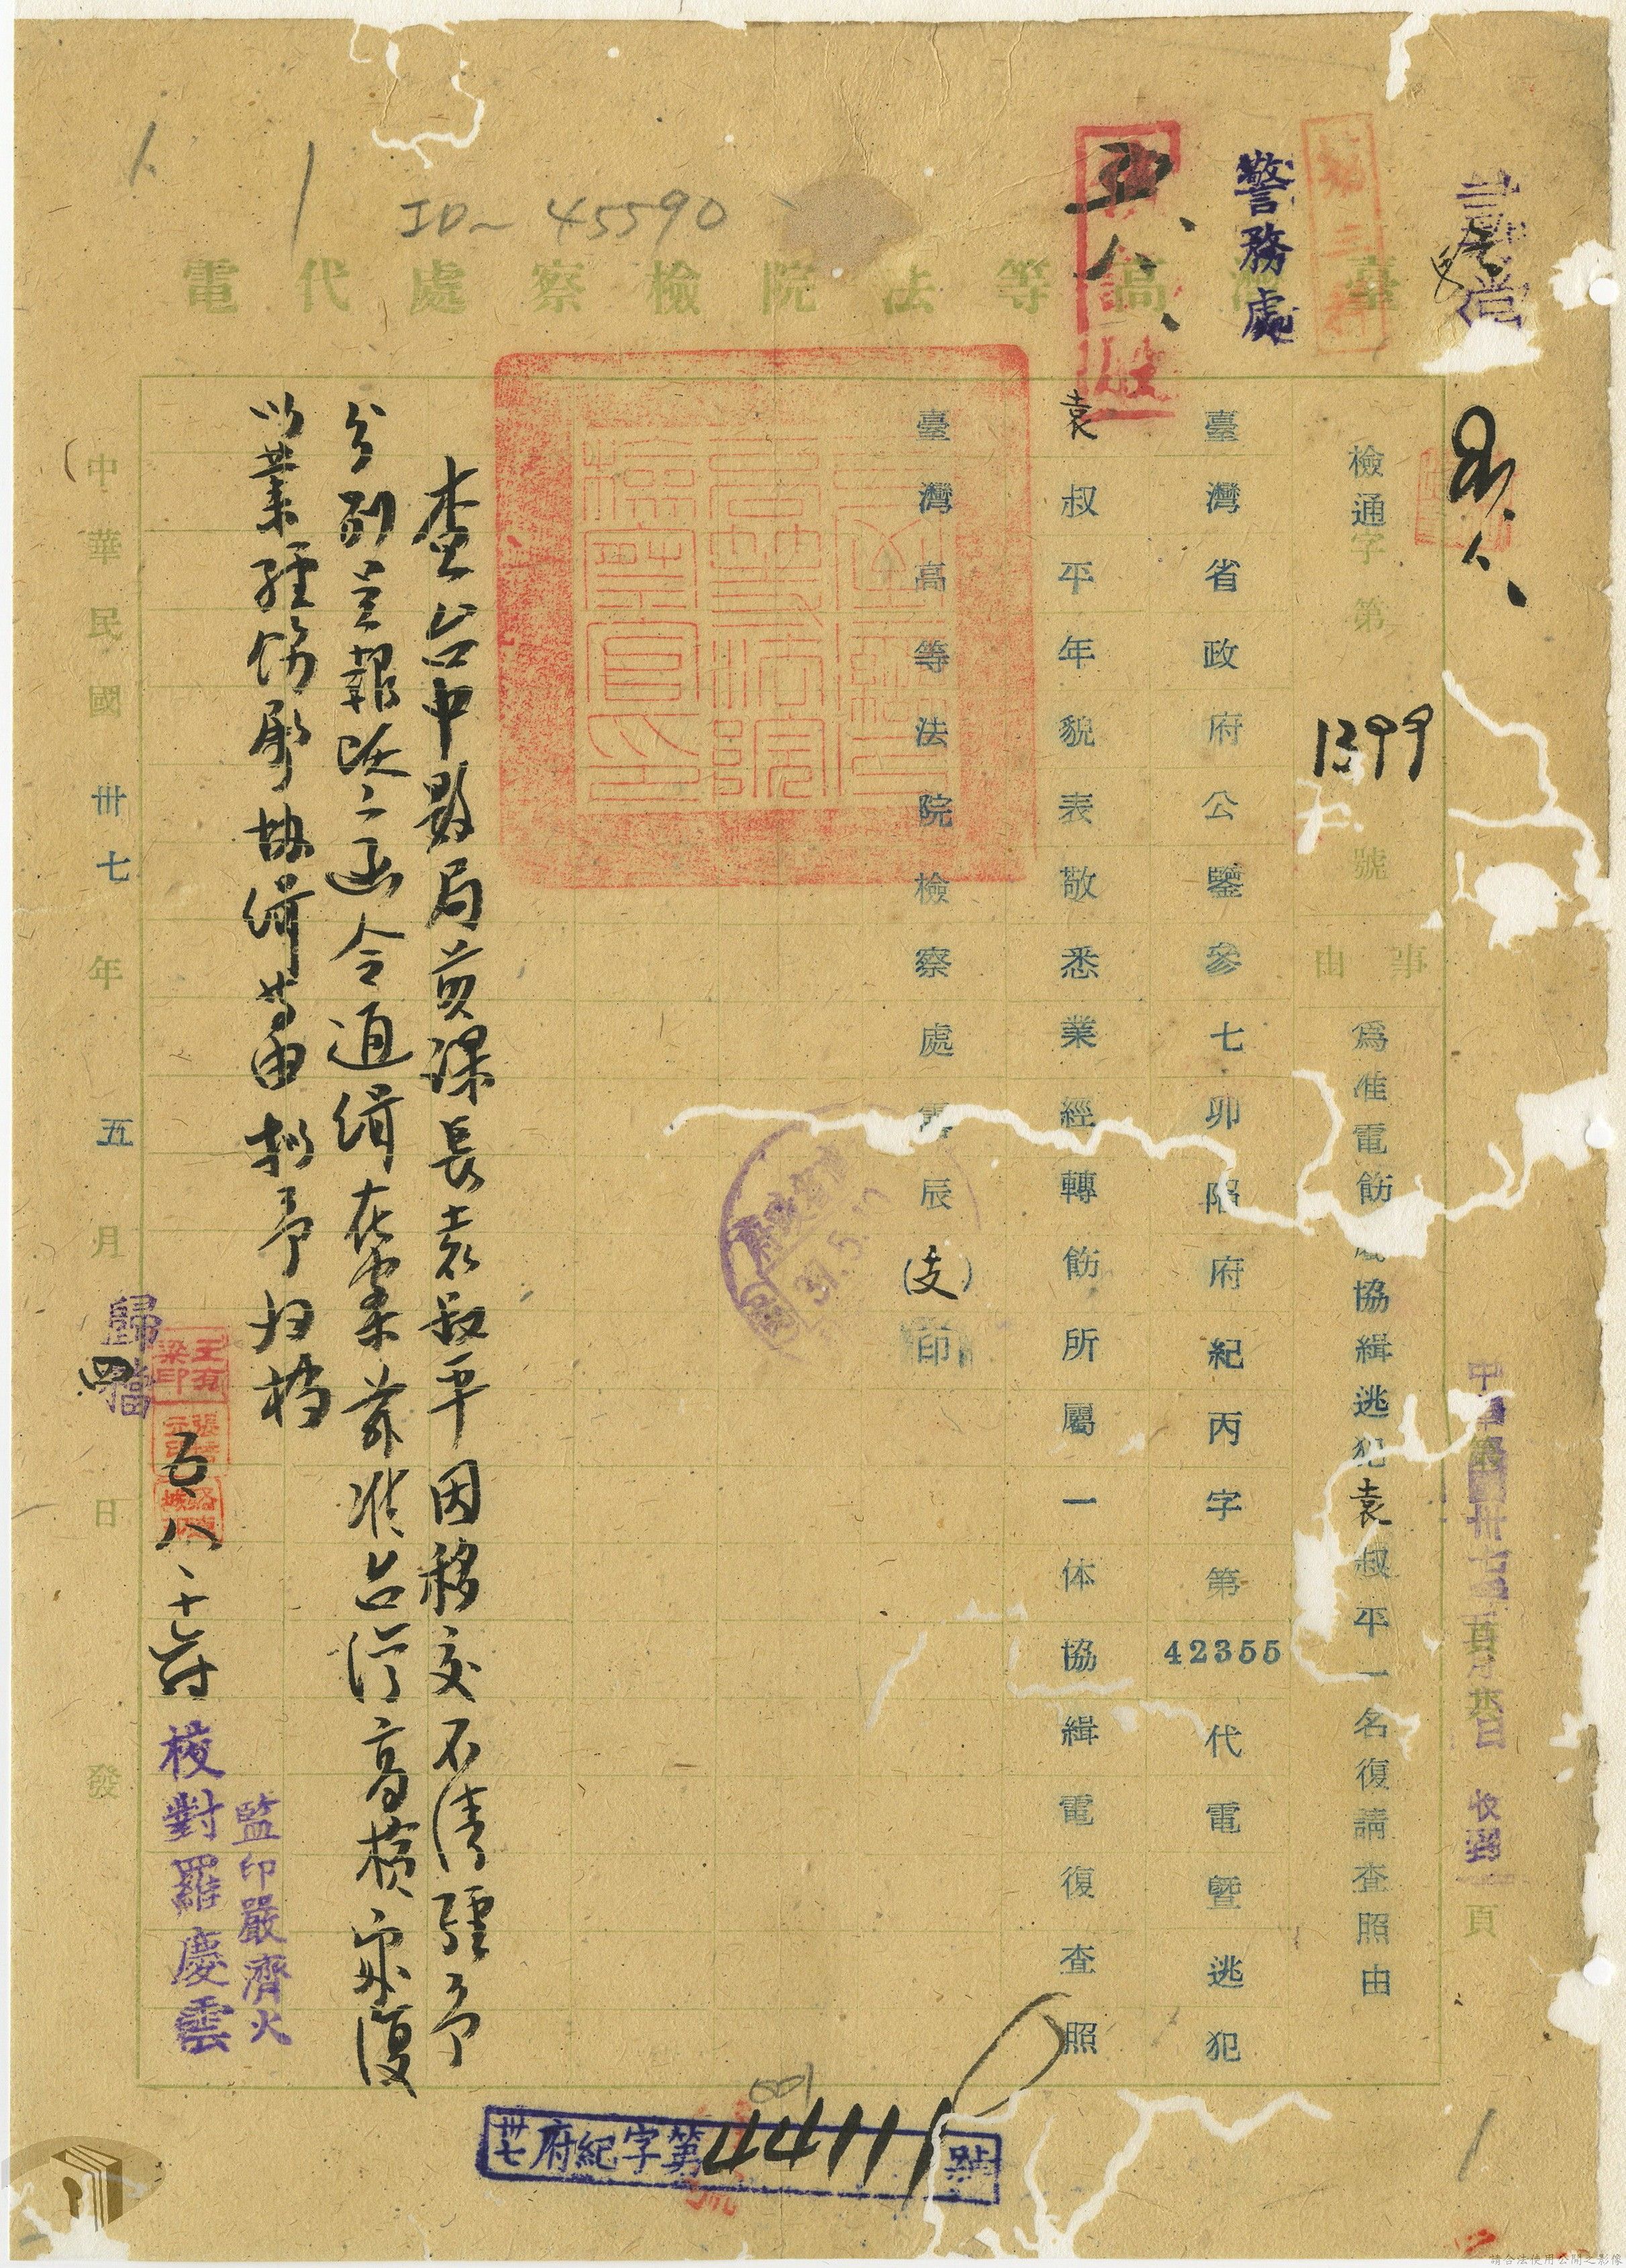 臺灣高等法院檢察處代電
警務處
ID~45590
五、八、
檢通字第1399號
事由
為准電飭屬協緝逃犯袁叔平一名復請查照由
臺灣省政府公鑒參七卯陷府紀丙字第42355代電暨逃犯
袁叔平年貌表敬悉業經轉飭所屬一体協緝電復查照
臺灣高等法院檢察處電辰(支)印
查台中縣局前課長袁叔平因移交不清經予
分別呈報汰之函令通緝在案茲准台灣高檢處復
以業經飭屬協緝等由擬予歸檔
五、八、
歸檔
王有梁印
監印嚴濟火
校對羅慶雲
中華民國卅七年五月四日發
中華民國卅七年 月 日收到
頁
卅七府紀字第44111號
請合法使用公開之影像